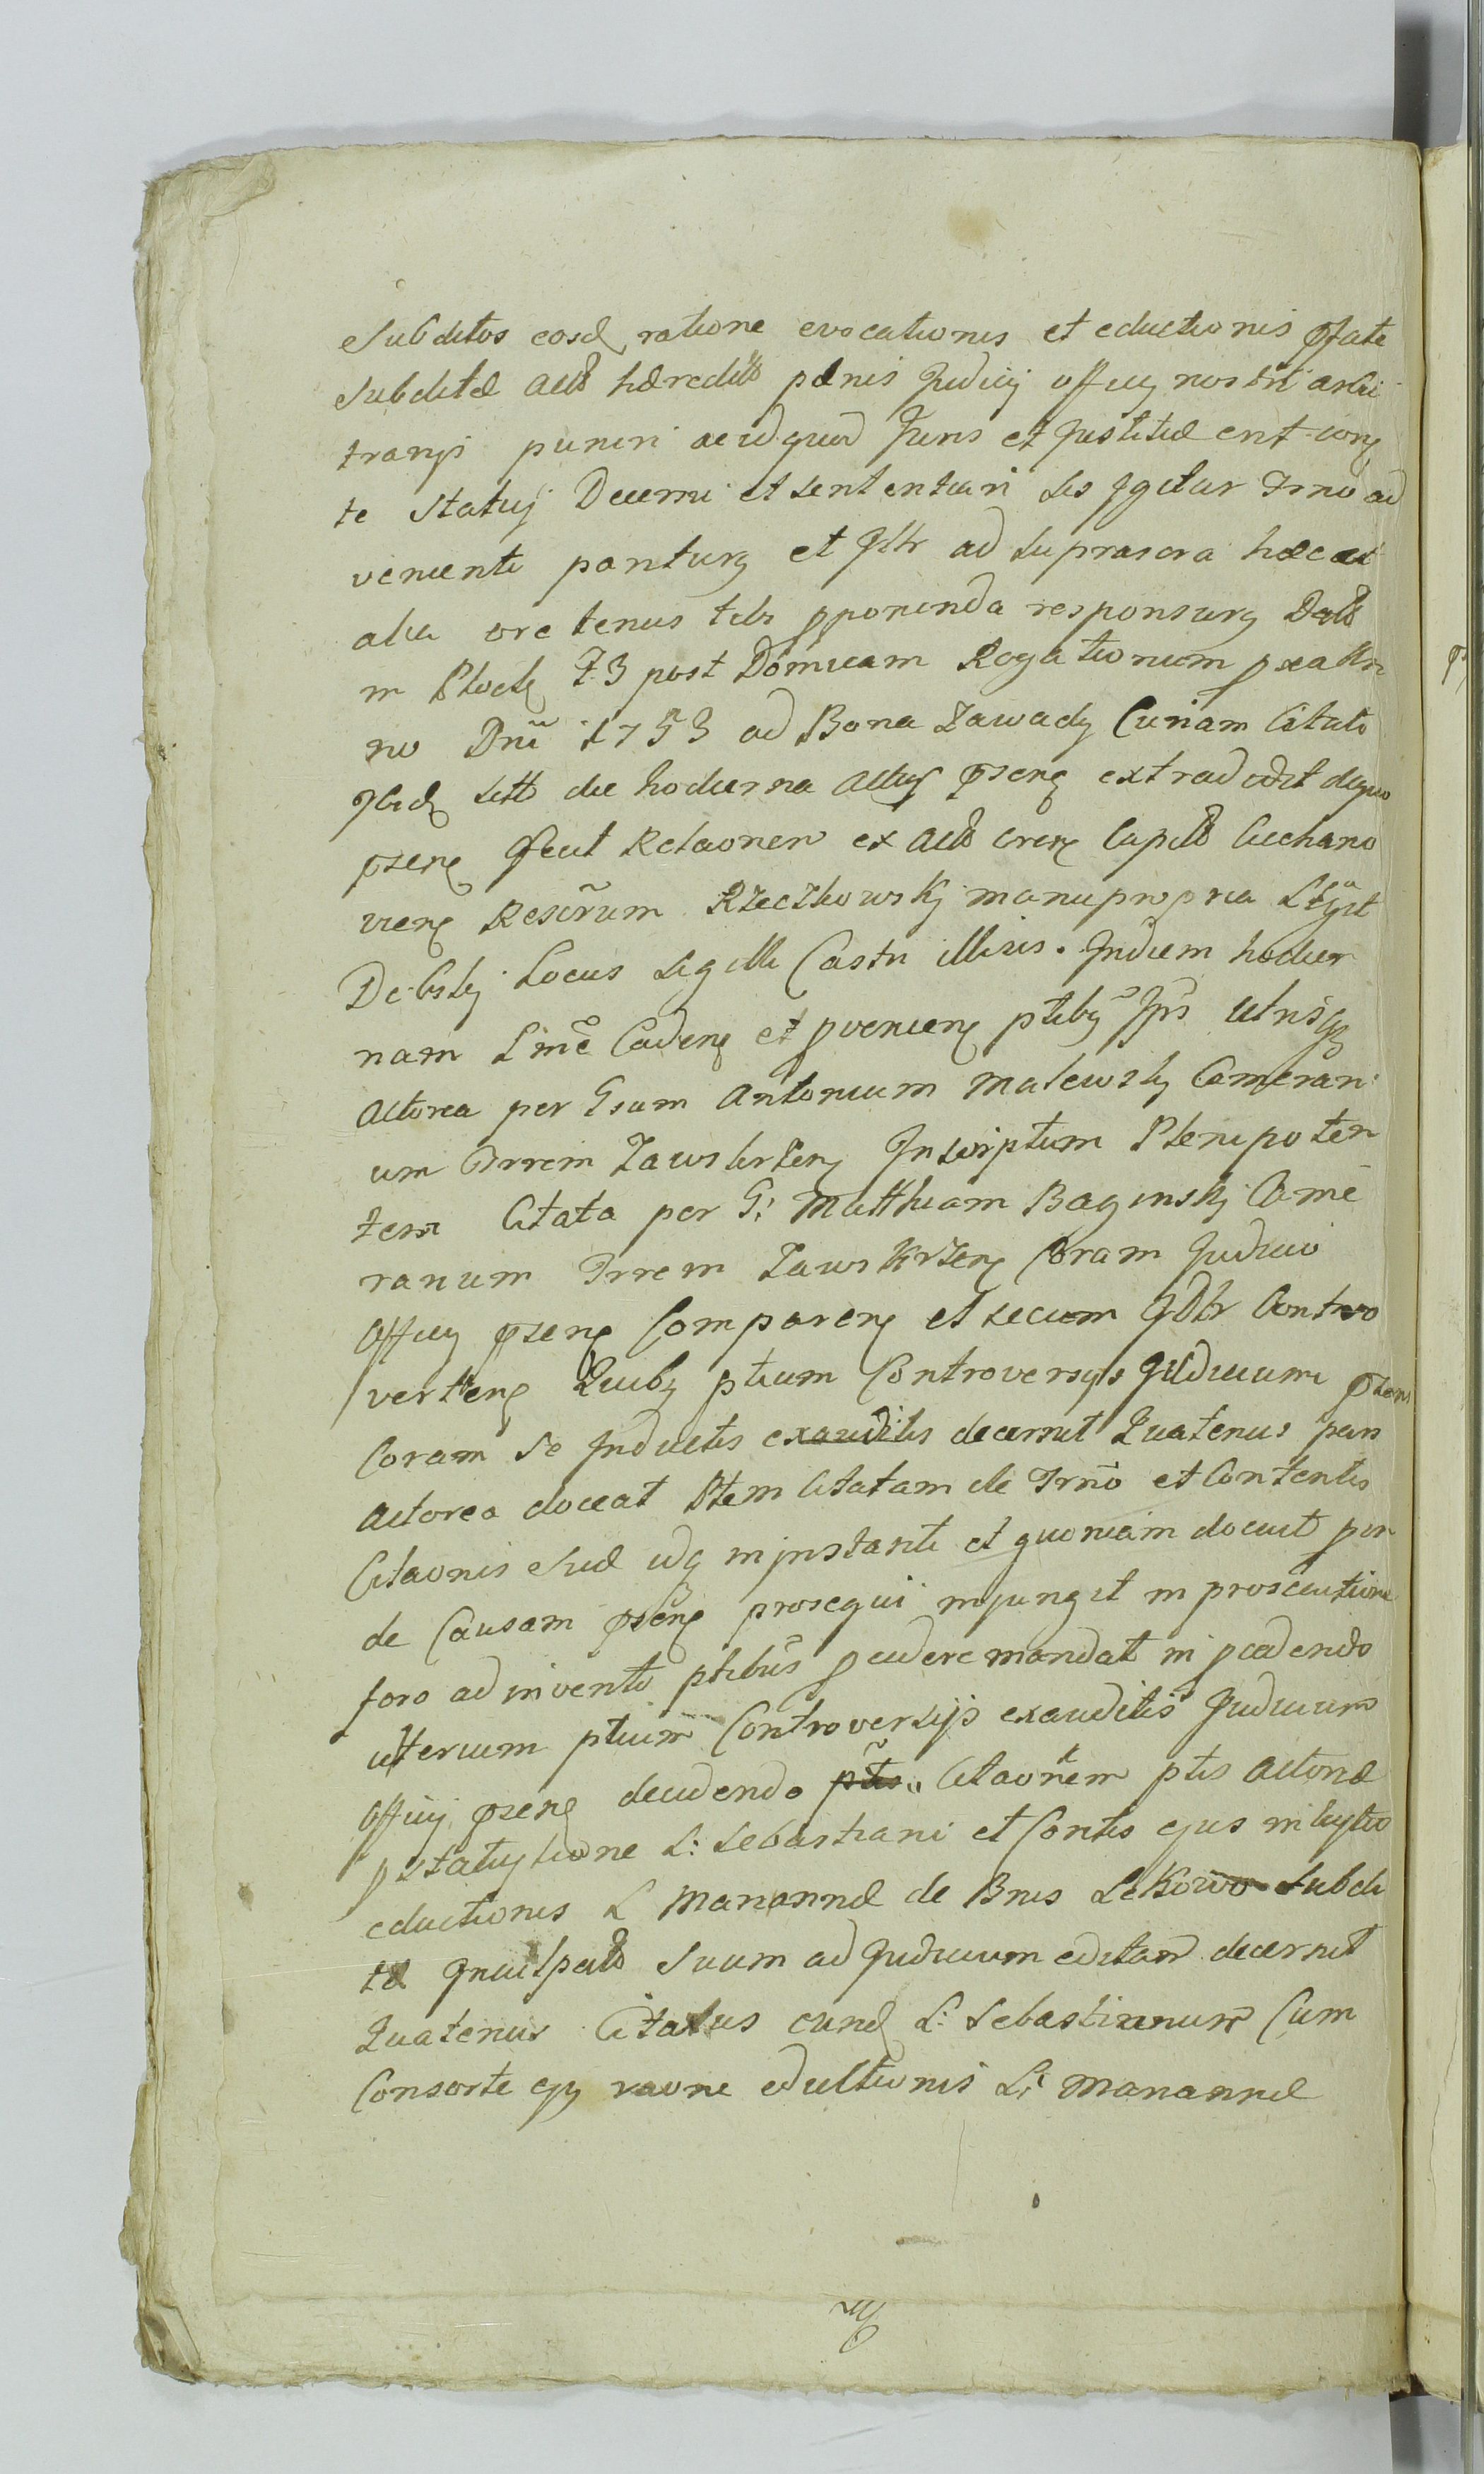 Subditos eosd ratione evocationis et eductionis pfatæ
Subditæ actŭ hæreditŭ pænis Judicij officij nostri arbi
trarijs puniri ac id quod Juris et Justitiæ erit circa
te Statuj Decerni et sententiari sis Igitur Trno ad
venienti pariturq et Jtlr ad suprascra hæc et
alia oretenus tibi pponenda responsurq Datŭ
in Plock F. 3 post Domicam Rogationum pxa An
no Dni 1753 ad Bona Zawady Curiam Citati
Ibid sitŭ die hodierna Actus pseng extradidit de quo
pseng fecit Relaonem ex Actŭ Creng Capitŭ Ciechano
vieng Rescrum Rzeczkowskj manupropria Legit
Debskj Locus Sigilli Castri illius. In diem hodier
nam Lime Cadeng et pvenieng ptibg Ips Utrisq
Actorea per Gsum Antonium Malewskj Camerari
um Trrem Zawskrzeng Inscriptum Plenipoten
tem Citata per G: Matthiam Baginskj Came
rarium Trrem Zawskrzeng Coram Judicio
Officij pseng Compareng et secum Jdlr Contro
verteng Quibg ptium Controversijs Judicium pseng
Coram se Inductis exauditis decernit Quatenus pars
Actorea doceat Ptem Citatam de Trno et Contentis
Citaonis Suæ idq in instanti et quoniam docuit pro in
de Causam pseng prosequi injungit in prosecutione
foro adinvento ptibus pcedere mandat in pcedendo
ulterium ptium Controversijs exauditis Judicium
Officij pseng decidendo ptis Citaonem ptis Actoreæ
p Statuitione L: Sebastiani et Contis ejus intuitu
eductionis L Mariannæ de Bnis Lekowo Subdi
tæ Principalŭ Suum ad Judicium editam decernit
Quatenus Citatus eund L: Sebastianum Cum
Consorte ejg raone eductionis L: Mariannæ